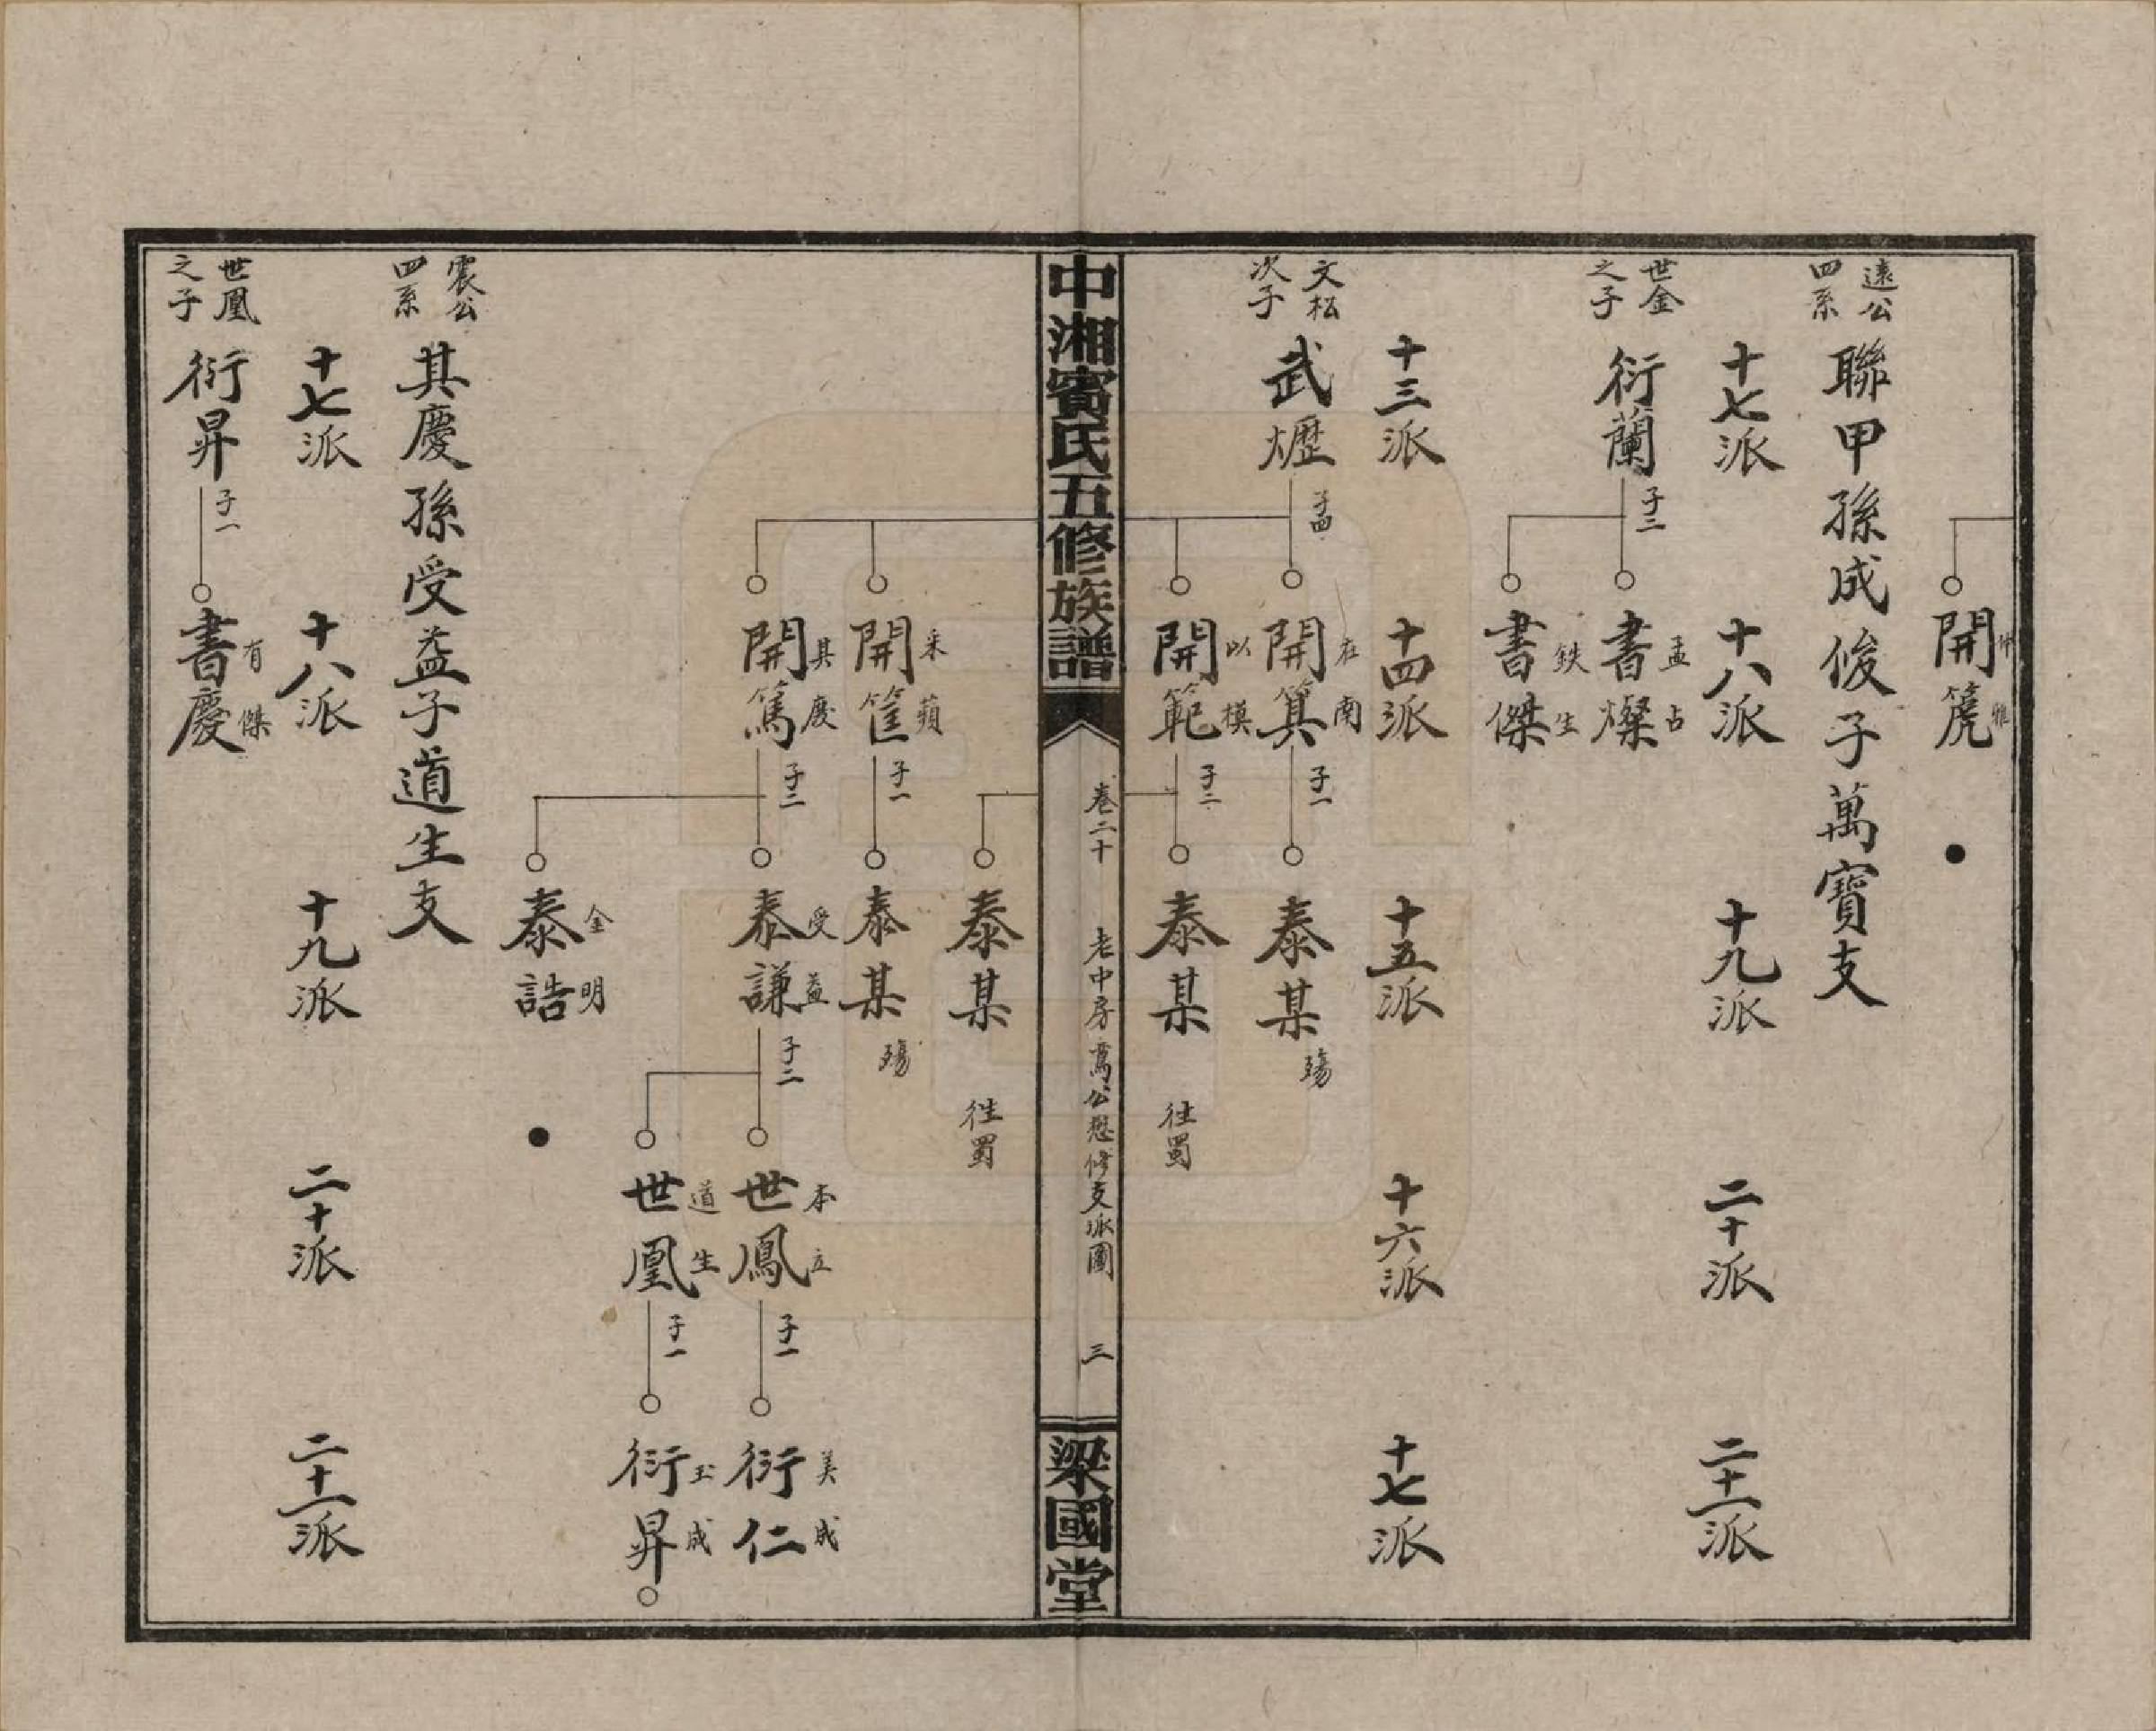 開箎
仲雅
遠公
四系
聯甲孫成俊子萬寶支
十七派
十八派
十九派
二十派
二十一派
世金
之子
衍蘭
子二
書燦
孟占
書傑
鉄生
十三派
十四派
十五派
十六派
十七派
文松
次子
武爏
子四
開箕
在南
子一
泰某
殤
開範
以模
子二
泰某
往蜀
中湘賓氏五修族譜
卷二十
老中房萬公懋修支派圖
三
梁國堂
泰某
往蜀
開筐
采蘋
子一
泰某
殤
開篤
其慶
子二
泰謙
受益
子二
世鳳
本立
子一
衍仁
美成
世凰
道生
子一
衍昇
玉成
泰誥
金明
震公
四系
其慶孫受益子道生支
十七派
十八派
十九派
二十派
二十一派
世凰
之子
衍昇
子一
書慶
有傑